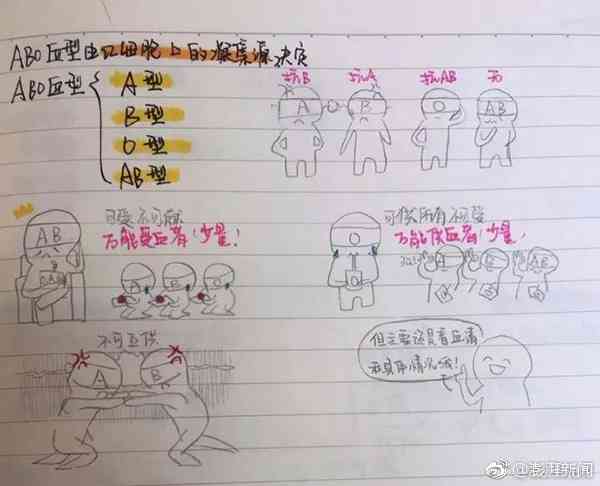 ABO血型由红细胞上的凝集原决定
ABO血型
A型
B型
O型
AB型
抗B 抗A 抗AB 无
A B O AB
可受不可供
万能受血者!少量!
AB
A B O
可供所有不可受
万能供血者!少量!
O
A B AB
不可互供
A B
但主要还是看血清
和具体情况哦!
@澎湃新闻